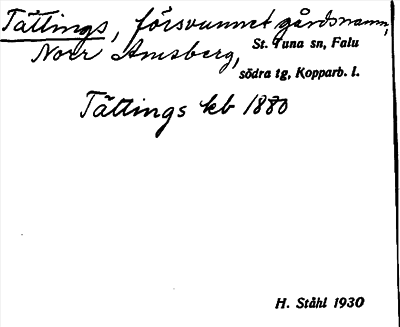 Tättings, försvunnet gårdsnamn,
Norr Amsberg, St. Tuna sn, Falu
södra tg, Kopparb. l.
Tättings kb 1880
H. Ståhl 1930